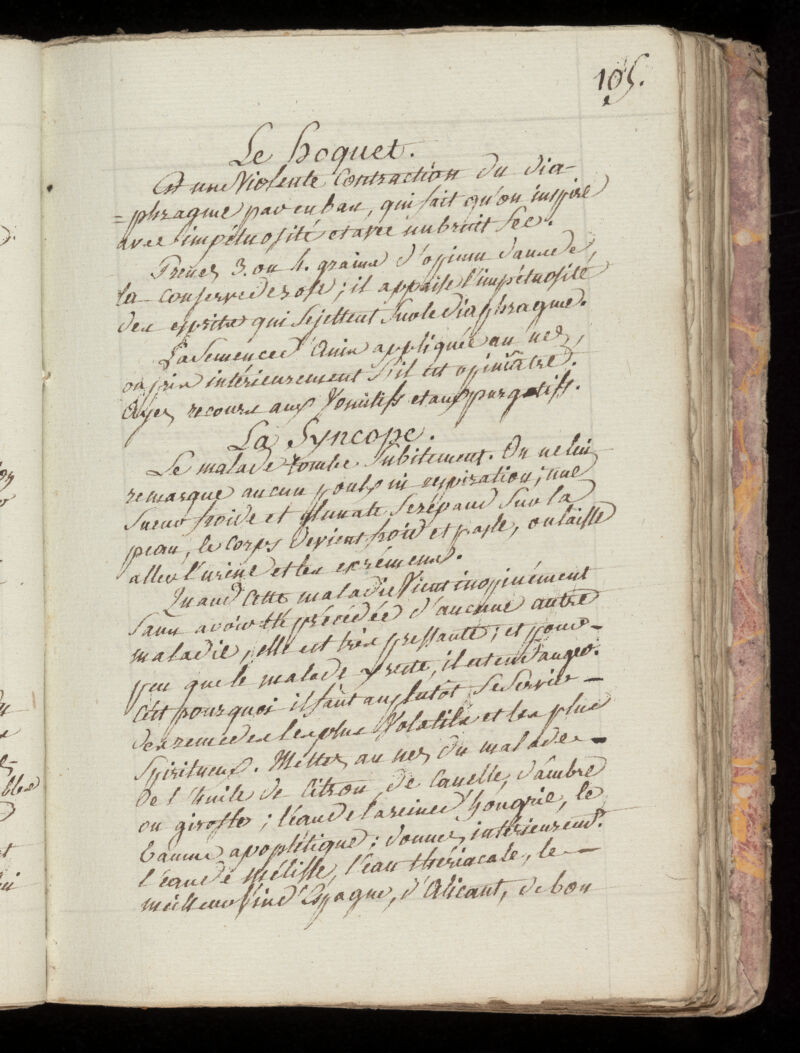 105.
Le hoquet.
Est une Violente Contraction du dia-
=phragme par en bas, qui fait qu'on inspire
avec impétuosité et avec un bruit sec.
Prenez 3. ou 4. grains d'opium dans de
la conserve de rose; il appaise l'impétuosité
des esprits qui se jettent sur le diaphragme.
La Semence d'Anis appliquée au nez,
ou pris intérieurement S'il est opiniâtre.
Ayez recours aux Vomitifs et aux purgatifs.
La Syncope.
Le malade tombe Subitement. On ne lui
remarque aucun poulx ni expiration; une
Sueur froide et gluante Se répand Sur la
peau, le corps devient froid et pasle, on laisse
aller l'urine et les excrémens.
Quand cette maladie Vient inopinément
Sans avoir été précédée d'aucune autre
maladie, elle est très pressante; et pour-
peu que le malade y reste, il est en danger.
C'est pourquoi il faut au plutôt Se Servir -
des remedes les plus Volatils et les plus
Spiritueux. Mettez au nez du malade -
de l'huile de Citron, de Canelle, d'ambre
ou girofle; l'eau de la reine d'hongrie, le
baume apoplétique; donnez intérieuremt.
l'eau de mélisse, l'eau thériacale, le -
meilleur Vin d'Espagne, d'Alicant, de bon